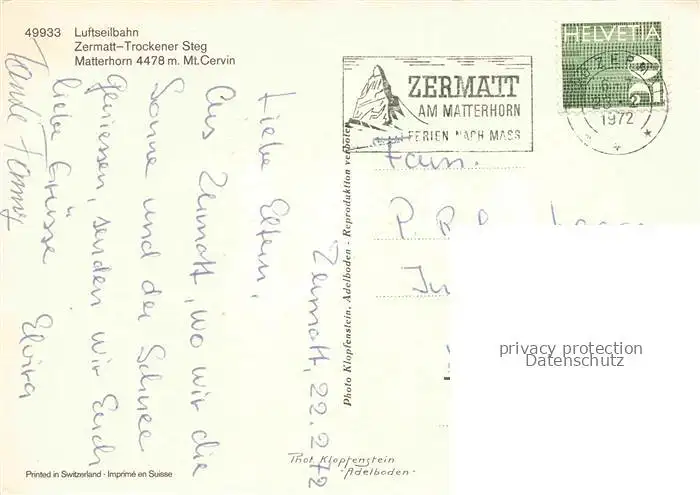 49933 Luftseilbahn
Zermatt–Trockener Steg
Matterhorn 4478 m. Mt. Cervin
HELVETIA
ZERMATT
AM MATTERHORN
FERIEN NACH MASS
ZERMATT
1972
Zermatt, 22.2.72
Liebe Eltern,
Aus Zermatt, wo wir die
Sonne und der Schnee
geniessen, senden wir Euch
liebe Grüsse Elvira
Tande Fanny
Fam.
P.
Photo Klopfenstein, Adelboden - Reproduktion verboten
Phot. Klopfenstein
-Adelboden-
Printed in Switzerland - Imprimé en Suisse
privacy protection
Datenschutz